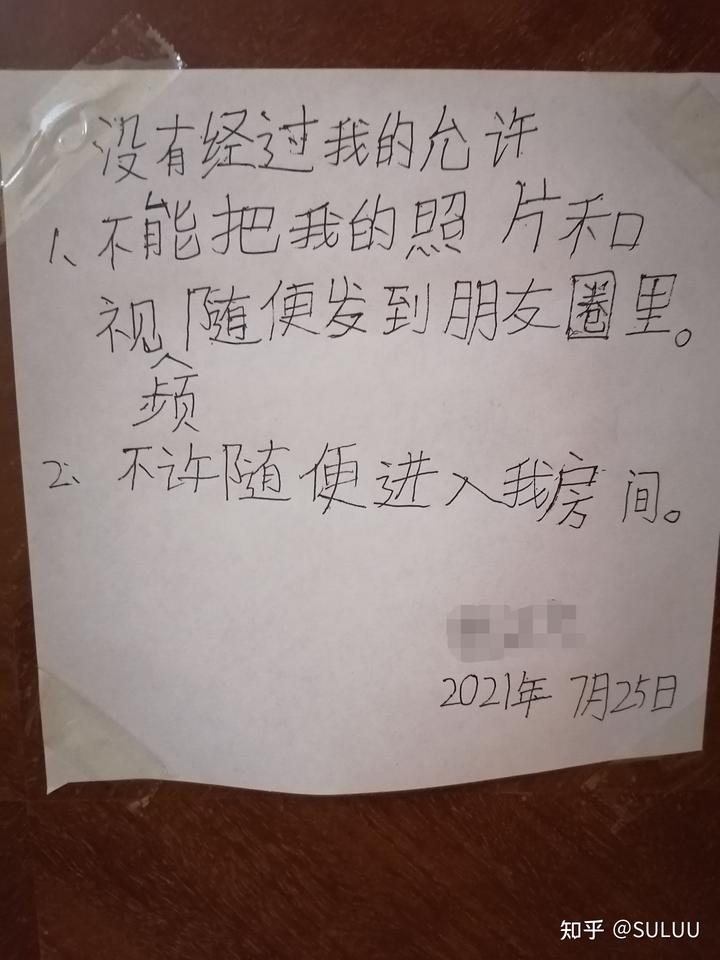 没有经过我的允许
1、不能把我的照片和
视随便发到朋友圈里。
频
2、不许随便进入我房间。
2021年7月25日
知乎 @SULUU